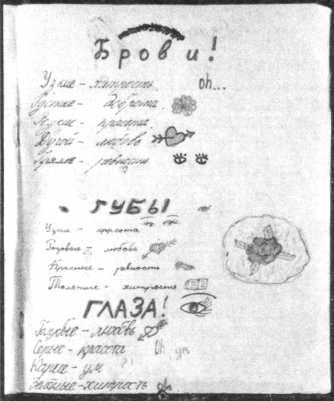 Брови!
Узкие - хитрость oh...
Густые - доброта
- красота
Дугой - любовь
Прямые - ревность
ГУБЫ
Узкие - красота
Розовые - любовь
Красные - ревность
Толстые - хитрость
ГЛАЗА!
Голубые - любовь
Серые - красота Oh yes
Карие - ум
Зелёные - хитрость oh